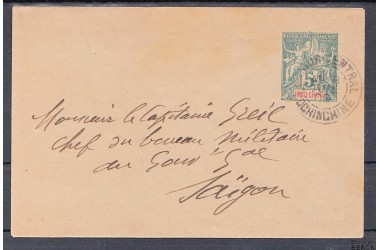 5
INDO-CHINE
CENTRAL
COCHINCHINE
Monsieur le Capitaine
chef du bureau militaire
du Gouv^t G^al
Saïgon